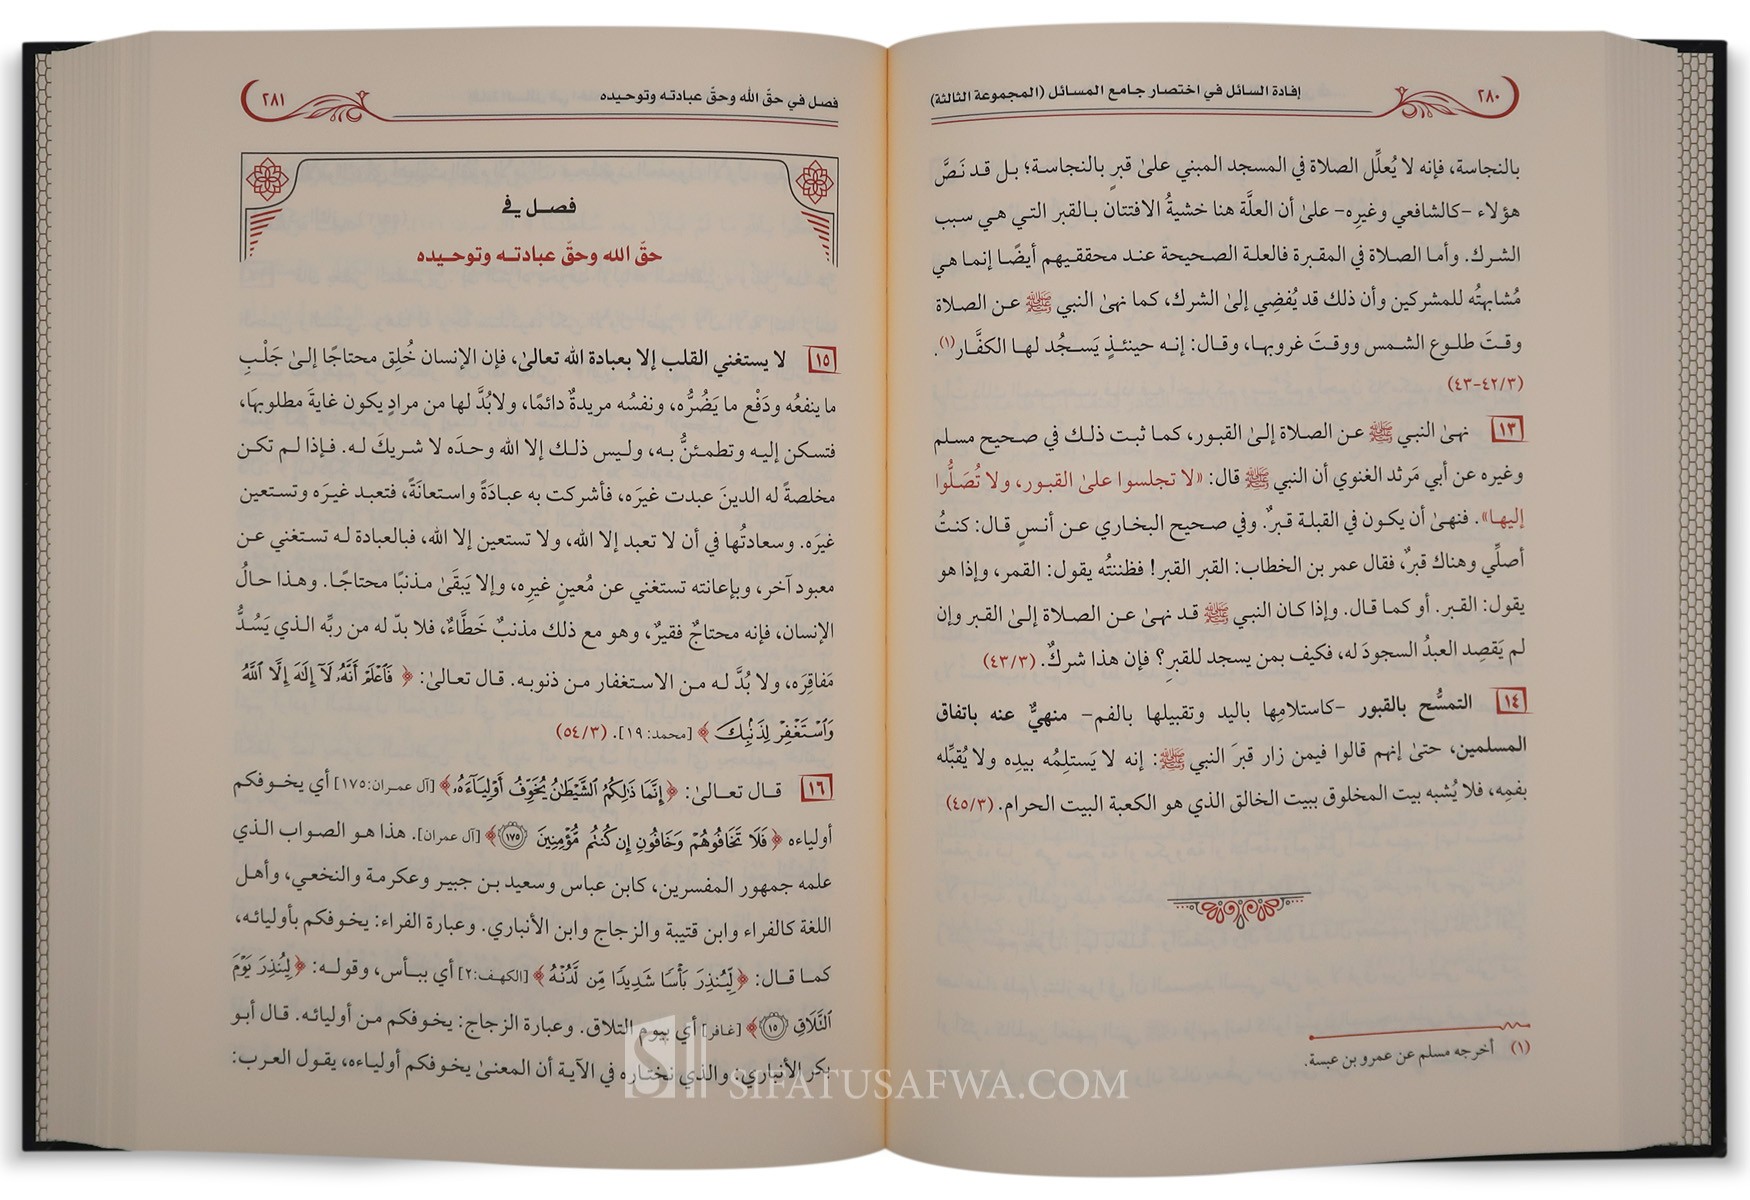 ٢٨٠
إفادة السائل في اختصار جامع المسائل (المجموعة الثالثة)
بالنجاسة، فإنه لا يُعلِّل الصلاة في المسجد المبني علىٰ قبرٍ بالنجاسة؛ بل قد نَصَّ
هؤلاء -كالشافعي وغيرِه- علىٰ أن العلَّة هنا خشيةُ الافتتان بالقبر التي هي سبب
الشرك. وأما الصلاة في المقبرة فالعلة الصحيحة عند محققيهم أيضًا إنما هي
مُشابهتُه للمشركين وأن ذلك قد يُفضِي إلىٰ الشرك، كما نهىٰ النبي ﷺ عن الصلاة
وقتَ طلوع الشمس ووقتَ غروبها، وقال: إنه حينئذٍ يَسجُد لها الكفَّار(١).
(٤٢/٣-٤٣)
١٣ نهىٰ النبي ﷺ عن الصلاة إلىٰ القبور، كما ثبت ذلك في صحيح مسلم
وغيره عن أبي مَرثد الغنوي أن النبي ﷺ قال: «لا تجلسوا علىٰ القبور، ولا تُصَلُّوا
إليها». فنهىٰ أن يكون في القبلة قبرٌ. وفي صحيح البخاري عن أنسٍ قال: كنتُ
أصلِّي وهناك قبرٌ، فقال عمر بن الخطاب: القبر القبر! فظننتُه يقول: القمر، وإذا هو
يقول: القبر. أو كما قال. وإذا كان النبي ﷺ قد نهىٰ عن الصلاة إلىٰ القبر وإن
لم يَقصِد العبدُ السجودَ له، فكيف بمن يسجد للقبرِ؟ فإن هذا شركٌ. (٤٣/٣)
١٤ التمسُّح بالقبور -كاستلامِها باليد وتقبيلها بالفم- منهيٌّ عنه باتفاق
المسلمين، حتىٰ إنهم قالوا فيمن زار قبرَ النبي ﷺ: إنه لا يَستلِمُه بيدِه ولا يُقبِّله
بفمِه، فلا يُشبه بيت المخلوق ببيت الخالق الذي هو الكعبة البيت الحرام. (٤٥/٣)
(١) أخرجه مسلم عن عمرو بن عبسة.
فصل في حقّ الله وحقّ عبادته وتوحيده
٢٨١
فصل في
حقّ الله وحقّ عبادته وتوحيده
١٥ لا يستغني القلب إلا بعبادة الله تعالىٰ، فإن الإنسان خُلِق محتاجًا إلىٰ جَلْبِ
ما ينفعُه ودَفْع ما يَضُرُّه، ونفسُه مريدةٌ دائمًا، ولابُدَّ لها من مرادٍ يكون غايةَ مطلوبها،
فتسكن إليه وتطمئنُّ به، وليس ذلك إلا الله وحدَه لا شريكَ له. فإذا لم تكن
مخلصةً له الدينَ عبدت غيرَه، فأشركت به عبادَةً واستعانَةً، فتعبد غيرَه وتستعين
غيرَه. وسعادتُها في أن لا تعبد إلا الله، ولا تستعين إلا الله، فبالعبادة له تستغني عن
معبود آخر، وبإعانته تستغني عن مُعينٍ غيرِه، وإلا يَبقَىٰ مذنبًا محتاجًا. وهذا حالُ
الإنسان، فإنه محتاجٌ فقيرٌ، وهو مع ذلك مذنبٌ خَطَّاءٌ، فلا بدّ له من ربِّه الذي يَسُدُّ
مَفاقِرَه، ولا بُدَّ له من الاستغفار من ذنوبه. قال تعالىٰ: ﴿فَٱعۡلَمۡ أَنَّهُۥ لَآ إِلَٰهَ إِلَّا ٱللَّهُ
وَٱسۡتَغۡفِرۡ لِذَنۢبِكَ﴾ [محمد:١٩]. (٥٤/٣)
١٦ قال تعالىٰ: ﴿إِنَّمَا ذَٰلِكُمُ ٱلشَّيۡطَٰنُ يُخَوِّفُ أَوۡلِيَآءَهُۥ﴾ [آل عمران:١٧٥] أي يخوفكم
أولياءه ﴿فَلَا تَخَافُوهُمۡ وَخَافُونِ إِن كُنتُم مُّؤۡمِنِينَ ١٧٥﴾ [آل عمران]. هذا هو الصواب الذي
علمه جمهور المفسرين، كابن عباس وسعيد بن جبير وعكرمة والنخعي، وأهل
اللغة كالفراء وابن قتيبة والزجاج وابن الأنباري. وعبارة الفراء: يخوفكم بأوليائه،
كما قال: ﴿لِّيُنذِرَ بَأۡسٗا شَدِيدٗا مِّن لَّدُنۡهُ﴾ [الكهف:٢] أي ببأس، وقوله: ﴿لِيُنذِرَ يَوۡمَ
ٱلتَّلَاقِ ١٥﴾ [غافر] أي بيوم التلاق. وعبارة الزجاج: يخوفكم من أوليائه. قال أبو
بكر الأنباري: والذي نختاره في الآية أن المعنىٰ يخوفكم أولياءه، يقول العرب:
SIFATUSAFWA.COM